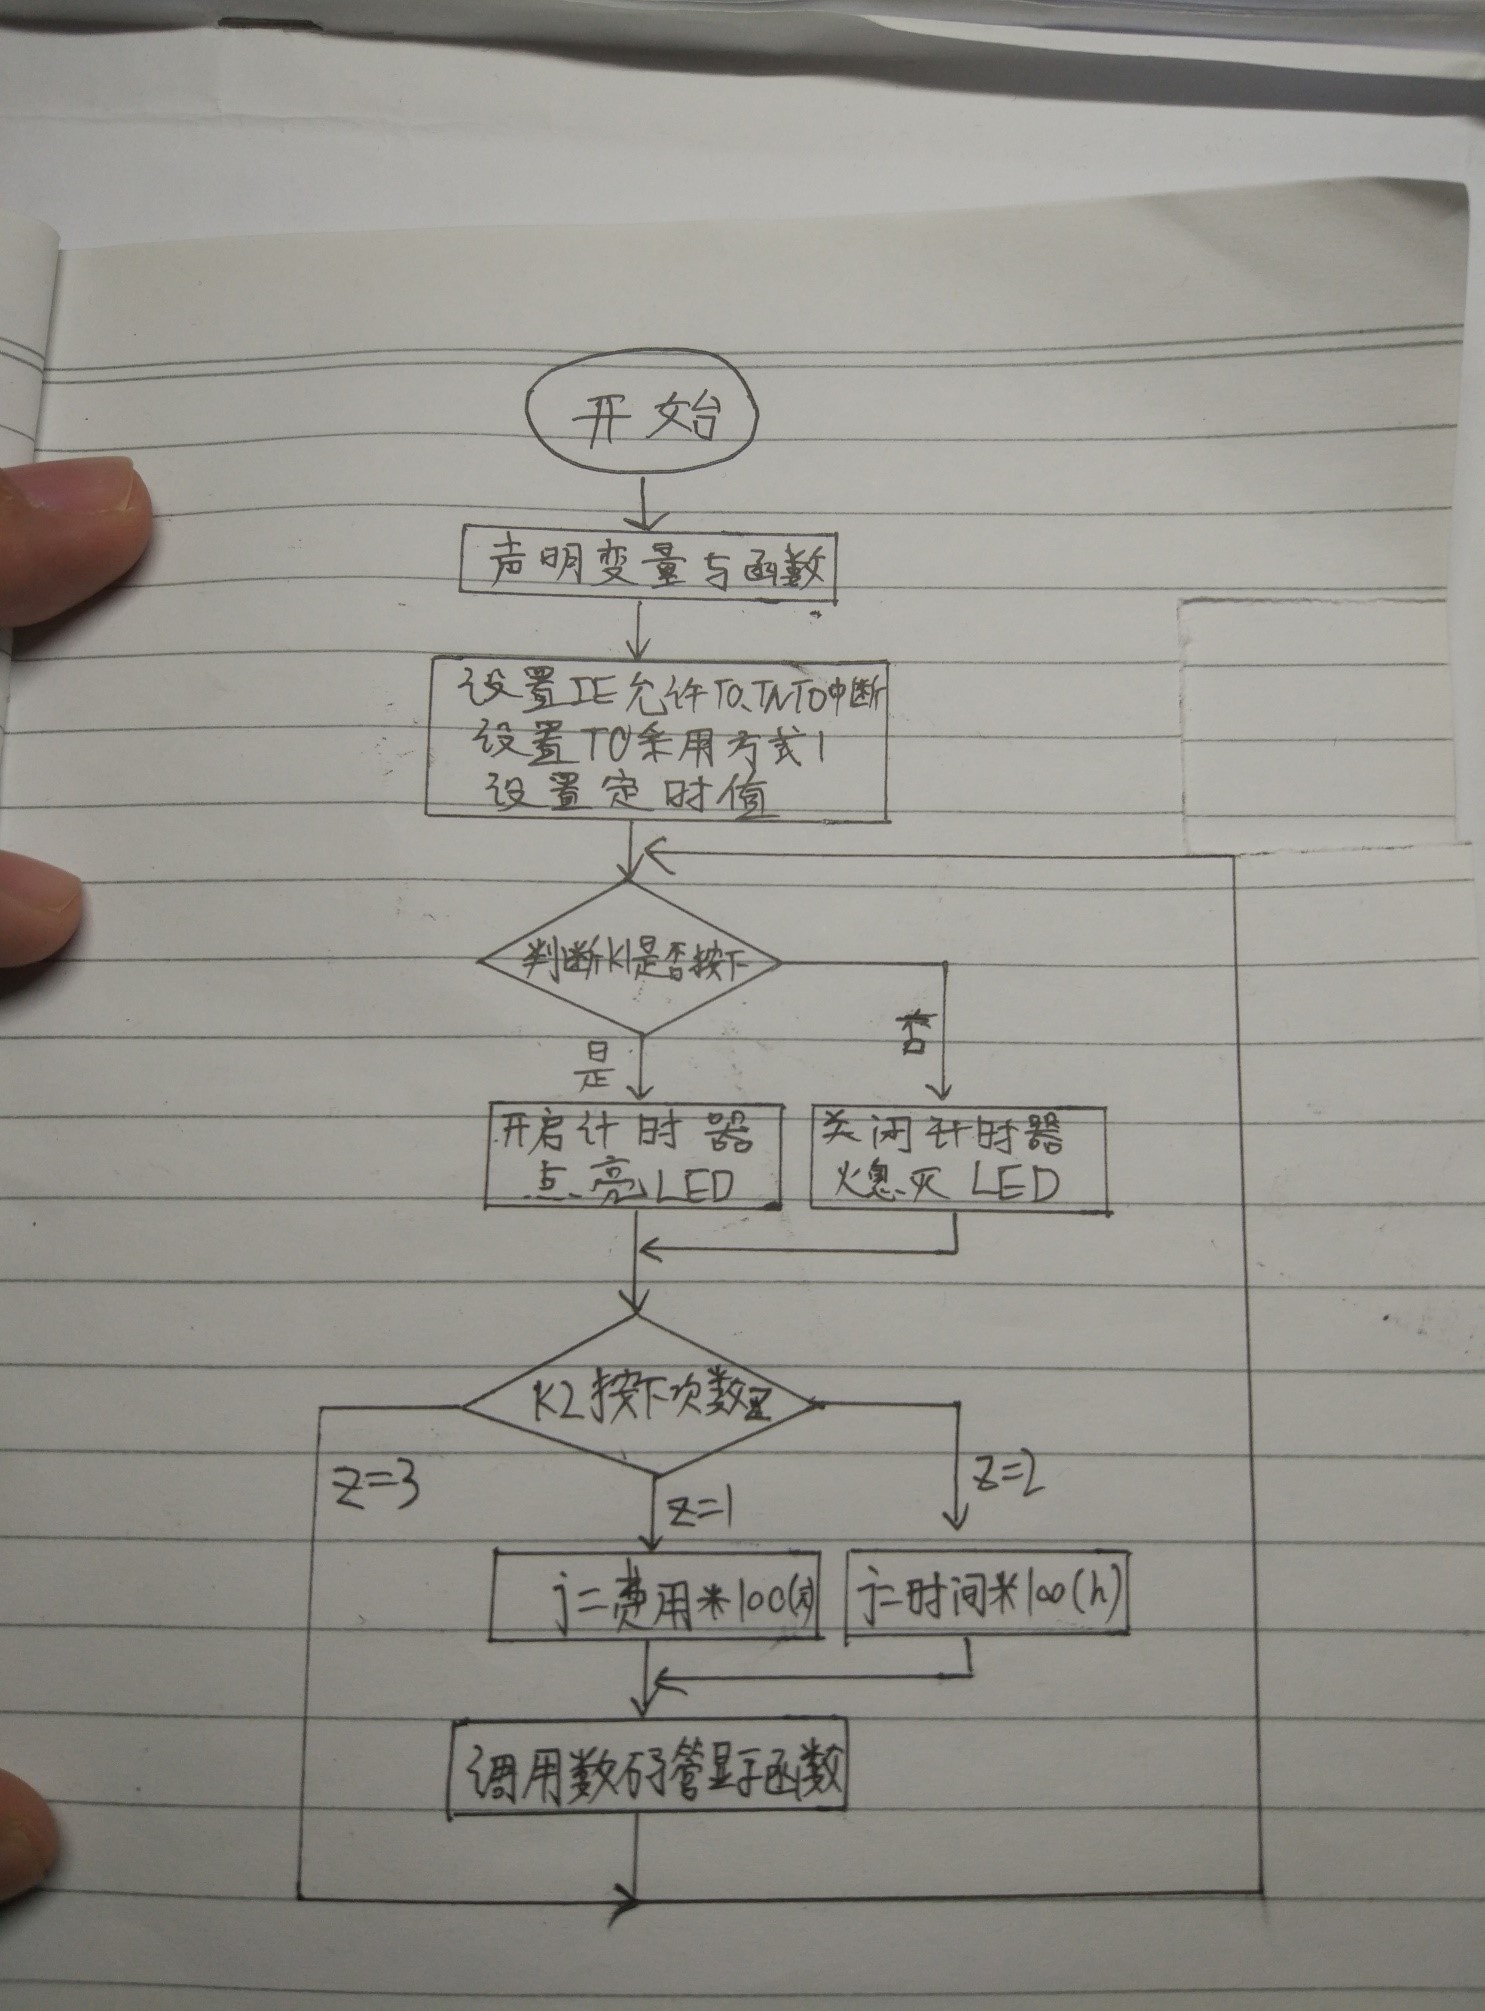 开始
声明变量与函数
设置IE允许T0、INT0中断
设置T0采用方式1
设置定时值
判断K1是否按下
是
否
开启计时器
点亮LED
关闭计时器
熄灭LED
K2按下次数z
z=3
z=1
z=2
j=费用*100()
j=时间*100(h)
调用数码管显示函数